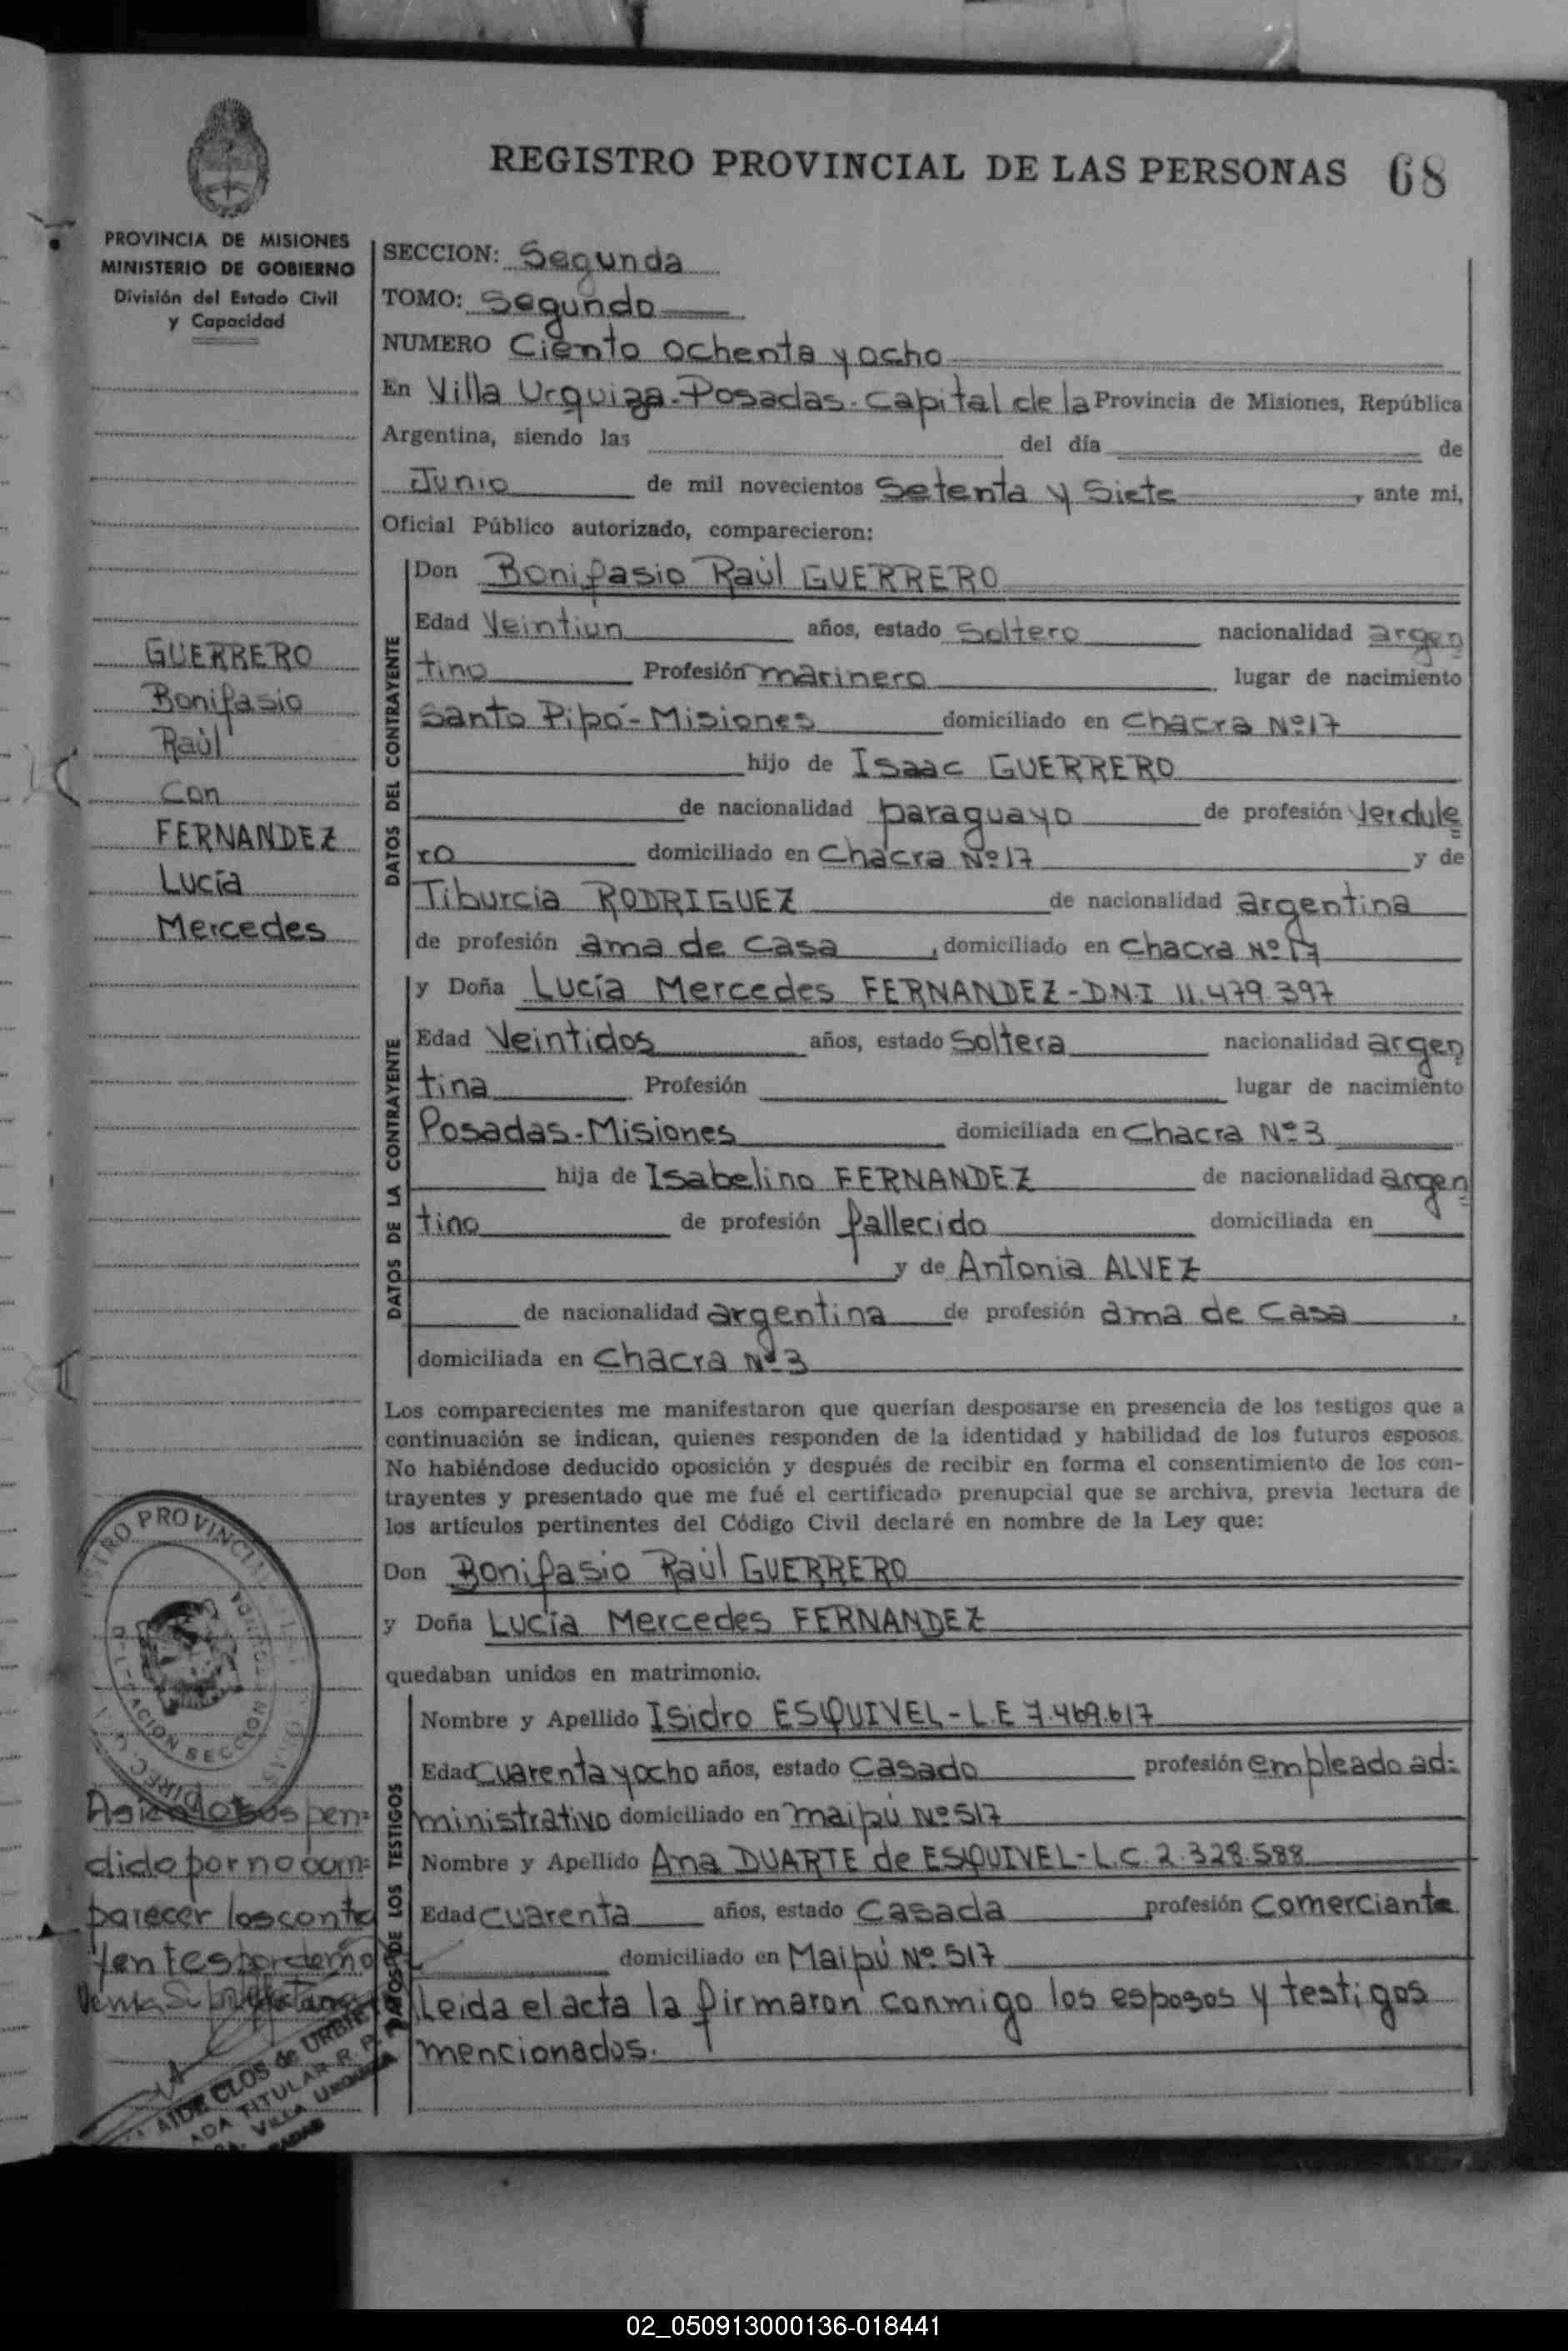 REGISTRO PROVINCIAL DE LAS PERSONAS 68
PROVINCIA DE MISIONES
MINISTERIO DE GOBIERNO
División del Estado Civil
y Capacidad
SECCION: Segunda
TOMO: Segundo
NUMERO Ciento ochenta y ocho
En Villa Urquiza-Posadas-Capital de la Provincia de Misiones, República
Argentina, siendo las del día de
Junio de mil novecientos Setenta y Siete, ante mi,
Oficial Público autorizado, comparecieron:
GUERRERO
Bonifasio
Raúl
Con
FERNANDEZ
Lucía
Mercedes
DATOS DEL CONTRAYENTE
Don Bonifasio Raúl GUERRERO
Edad Veintiun años, estado Soltero nacionalidad argen
tino Profesión marinero lugar de nacimiento
Santo Pipó-Misiones domiciliado en Chacra Nº17
hijo de Isaac GUERRERO
de nacionalidad paraguayo de profesión Verdule
ro domiciliado en Chacra Nº17 y de
Tiburcia RODRIGUEZ de nacionalidad argentina
de profesión ama de Casa, domiciliado en Chacra Nº17
DATOS DE LA CONTRAYENTE
y Doña Lucía Mercedes FERNANDEZ-D.N.I 11.479.397
Edad Veintidos años, estado Soltera nacionalidad argen
tina Profesión lugar de nacimiento
Posadas-Misiones domiciliada en Chacra Nº3
hija de Isabelino FERNANDEZ de nacionalidad argen
tino de profesión fallecido domiciliada en
y de Antonia ALVEZ
de nacionalidad argentina de profesión ama de Casa,
domiciliada en Chacra Nº3
Los comparecientes me manifestaron que querían desposarse en presencia de los testigos que a
continuación se indican, quienes responden de la identidad y habilidad de los futuros esposos.
No habiéndose deducido oposición y después de recibir en forma el consentimiento de los con-
trayentes y presentado que me fué el certificado prenupcial que se archiva, previa lectura de
los artículos pertinentes del Código Civil declaré en nombre de la Ley que:
Don Bonifasio Raúl GUERRERO
y Doña Lucía Mercedes FERNANDEZ
quedaban unidos en matrimonio.
DATOS DE LOS TESTIGOS
Nombre y Apellido Isidro ESQUIVEL-L.E 7.469.617
Edad Cuarenta y ocho años, estado Casado profesión empleado ad=
ministrativo domiciliado en maipú Nº517
Nombre y Apellido Ana DUARTE de ESQUIVEL-L.C. 2.328.588
Edad Cuarenta años, estado Casada profesión Comerciante
domiciliado en Maipú Nº 517
Leida el acta la firmaron conmigo los esposos y testigos
mencionados.
PROVINCIAL
SECCION
pen=
dido por no com=
parecer los contra
yentes
CLOS de URBIE
TITULAR R. P.
VILLA URQUIZA
02_050913000136-018441